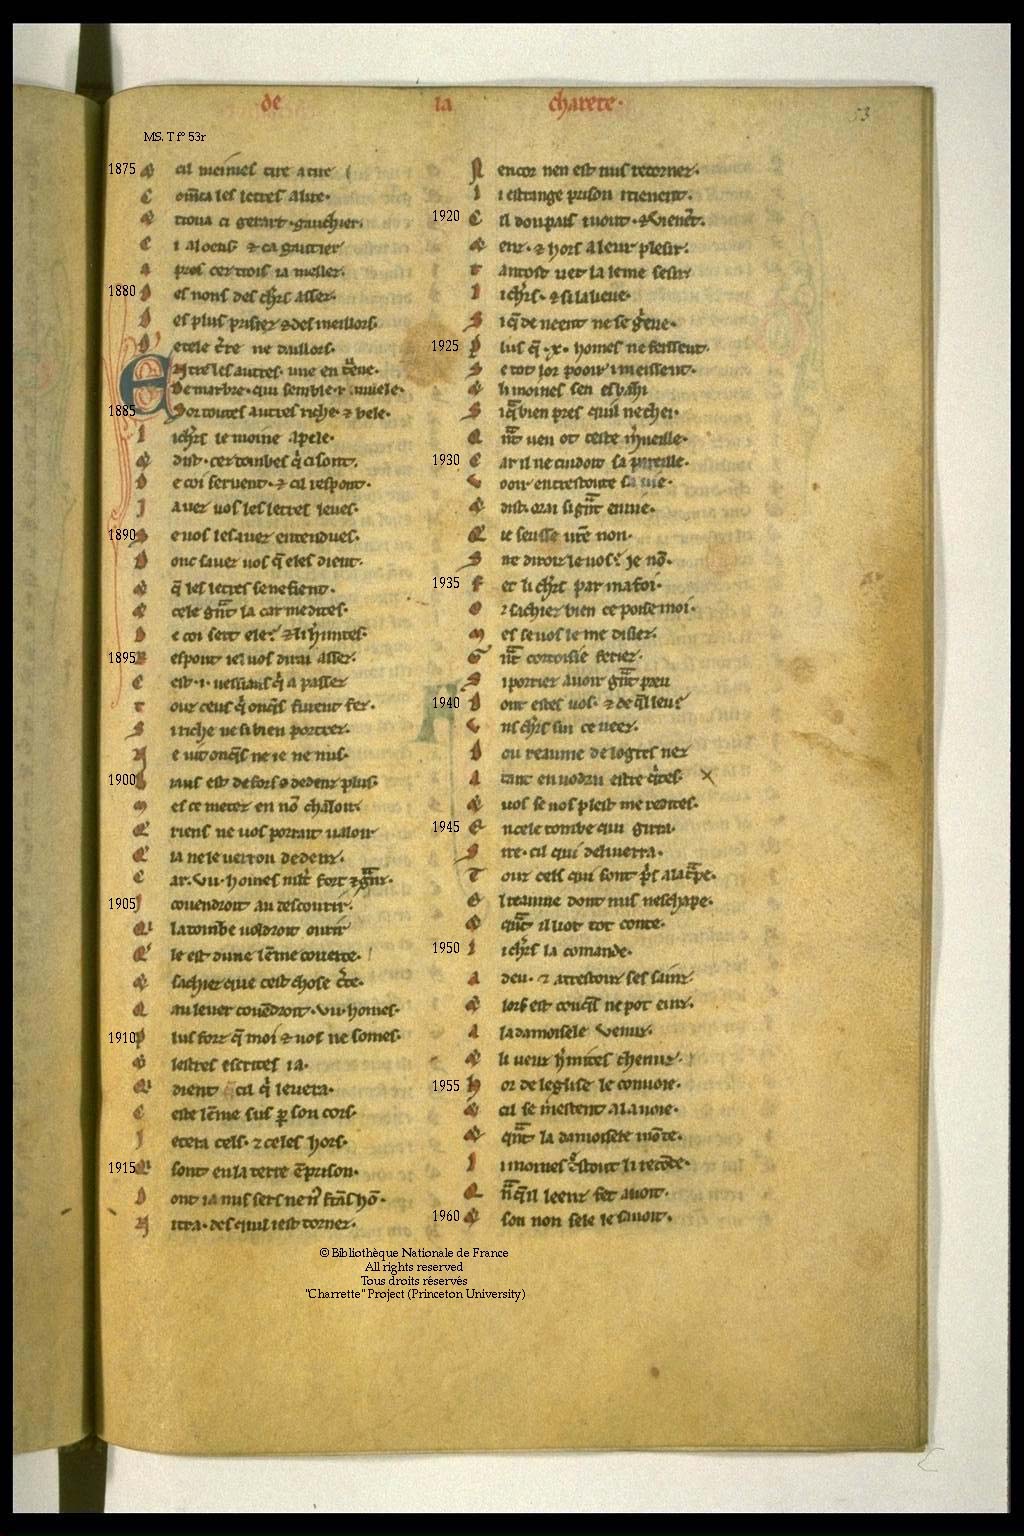 de la charete.
53
MS. T fº 53r
1875 Q cil meimes tire a tire
C om̄ca les letres a lire.
Q trova ci gerart. gauchier.
C i aloeus ⁊ ca gautier
A pres cez trois ia mellez.
1880 D es nons des ch'rs assez.
D es plus prisiez ⁊ des meillors.
D e cele t're ne daillors.
Entre les autres une en t'ueve.
De marbre. qui semble
1885 Sor toutes autres riche. ⁊ bele.
L i ch'rs le moine apele.
Q dist. cez tombes q' ci sont.
D e coi servent. ⁊ cil respont.
J avez vos les letres leues.
1890 S e vos les avez entendues.
D onc savez vos q̄ eles dient.
Q q̄ les letres senefient.
Q cele gn̄t la car me dites.
D e coi sert ele. ⁊ li h'mites.
1895 R espont iel vos dirai assez.
C est .i. vessiaus q' a passez
T ouz ceus q' onq̄s furent fez.
S i riche ne si bien portrez.
N e vit onq̄s ne ie ne nus.
1900 M aus est defors ⁊ dedenz plus.
M es ce metez en nō chaloir.
Q riens ne vos porrait valoir
Q ia ne le verrou dedenz.
C ar .vii. homes mlt fort ⁊ gn̄z.
1905 I couendroit au descourir.
Q la tombe voldroit ovrir
Q le est dune lāme couerte.
Q sachiez que cest chose c'te.
Q au leuer couēdroit .vii. homes.
1910 P lus forz q̄ moi ⁊ vos ne somes.
Q lestres escrites ia.
Q dient cil q' levera.
C este lāme sus p son cors.
J etera cels. ⁊ celes hors.
1915 Q sont en la terre ēprison.
D ont ia nus sers ne
N istra. des quil iest tornez.
N encor nen est nus retornez.
L i estrange prison retienent.
1920 C il dou pais vont. ⁊ vienēt.
Q enz. ⁊ hors a leur plesir.
T antost vet la leme sesir
L i ch'rs. ⁊ si la lieve.
S i q̄ de neent ne se g'eve.
1925 P lus q̄ .x. homes ne feissent.
S e tot lor pooir i meissent.
Q li moines sen esbahi
S i q̄ bien pres quil ne chei.
Q nt veu ot ceste m'ueille.
1930 C ar il ne cuidoit la pareille.
V ooir en trestoute sa vie.
Q dist. orai si gn̄t envie.
Q ie seusse vr̄e non.
S ne diroiz le vos. je nō.
1935 F et li ch'rs par ma foi.
O r sachiez bien ce poise moi.
M es se vos le me disiez.
G nt cortoisie feriez.
S i porriez avoir gn̄t preu
1940 D ont estes vos. ⁊ de q̄l leus
V ns ch'rs sui ce veez.
D ou reaume de logres nez
A tant en vodrai estre q'tes.
Q vos se vos plest me redites.
1945 E n cele tombe qui girra.
S ire. cil qui deliverra.
T ouz cels qui sont p's a la t'pe.
E l reaume dont nus neschape.
Q quāt il liot tot conte.
1950 L i ch'rs la comande.
A deu. ⁊ a trestouz ses sainz.
Q lors est couq̄s ne pot einz.
A la damoisele venuz.
Q li veuz h'mites chenuz.
1955 H or de leglise le convoie.
Q cil se mestent a la voie.
Q qn̄t la damoisele mōte.
L i moines t'stout li recōte.
Q n̄q̄ cil leenz fet avoit.
1960 Q son non sele le savoit.
©Bibliothèque Nationale de France
All rights reserved
Tous droits réservés
"Charrette" Project (Princeton University)